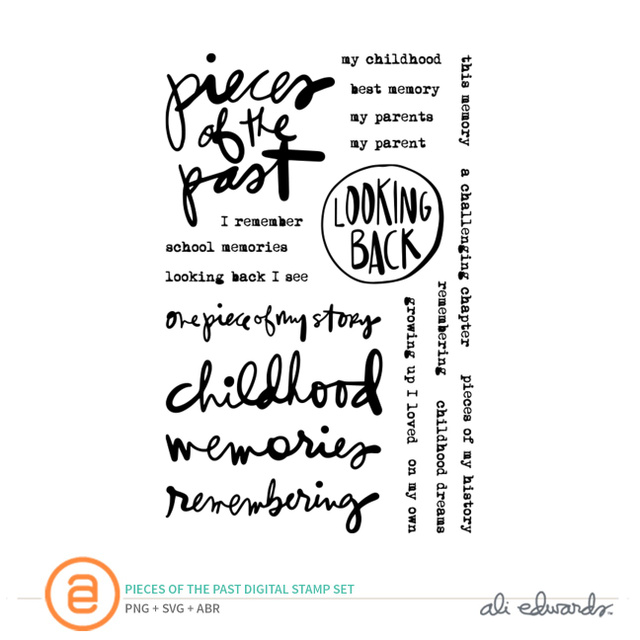 pieces
of the
past
my childhood
best memory
my parents
my parent
this memory
a challenging chapter
pieces of my history
LOOKING
BACK
I remember
school memories
looking back I see
one piece of my story
childhood
memories
remembering
growing up I loved
on my own
remembering
childhood dreams
a
PIECES OF THE PAST DIGITAL STAMP SET
PNG + SVG + ABR
ali edwards.